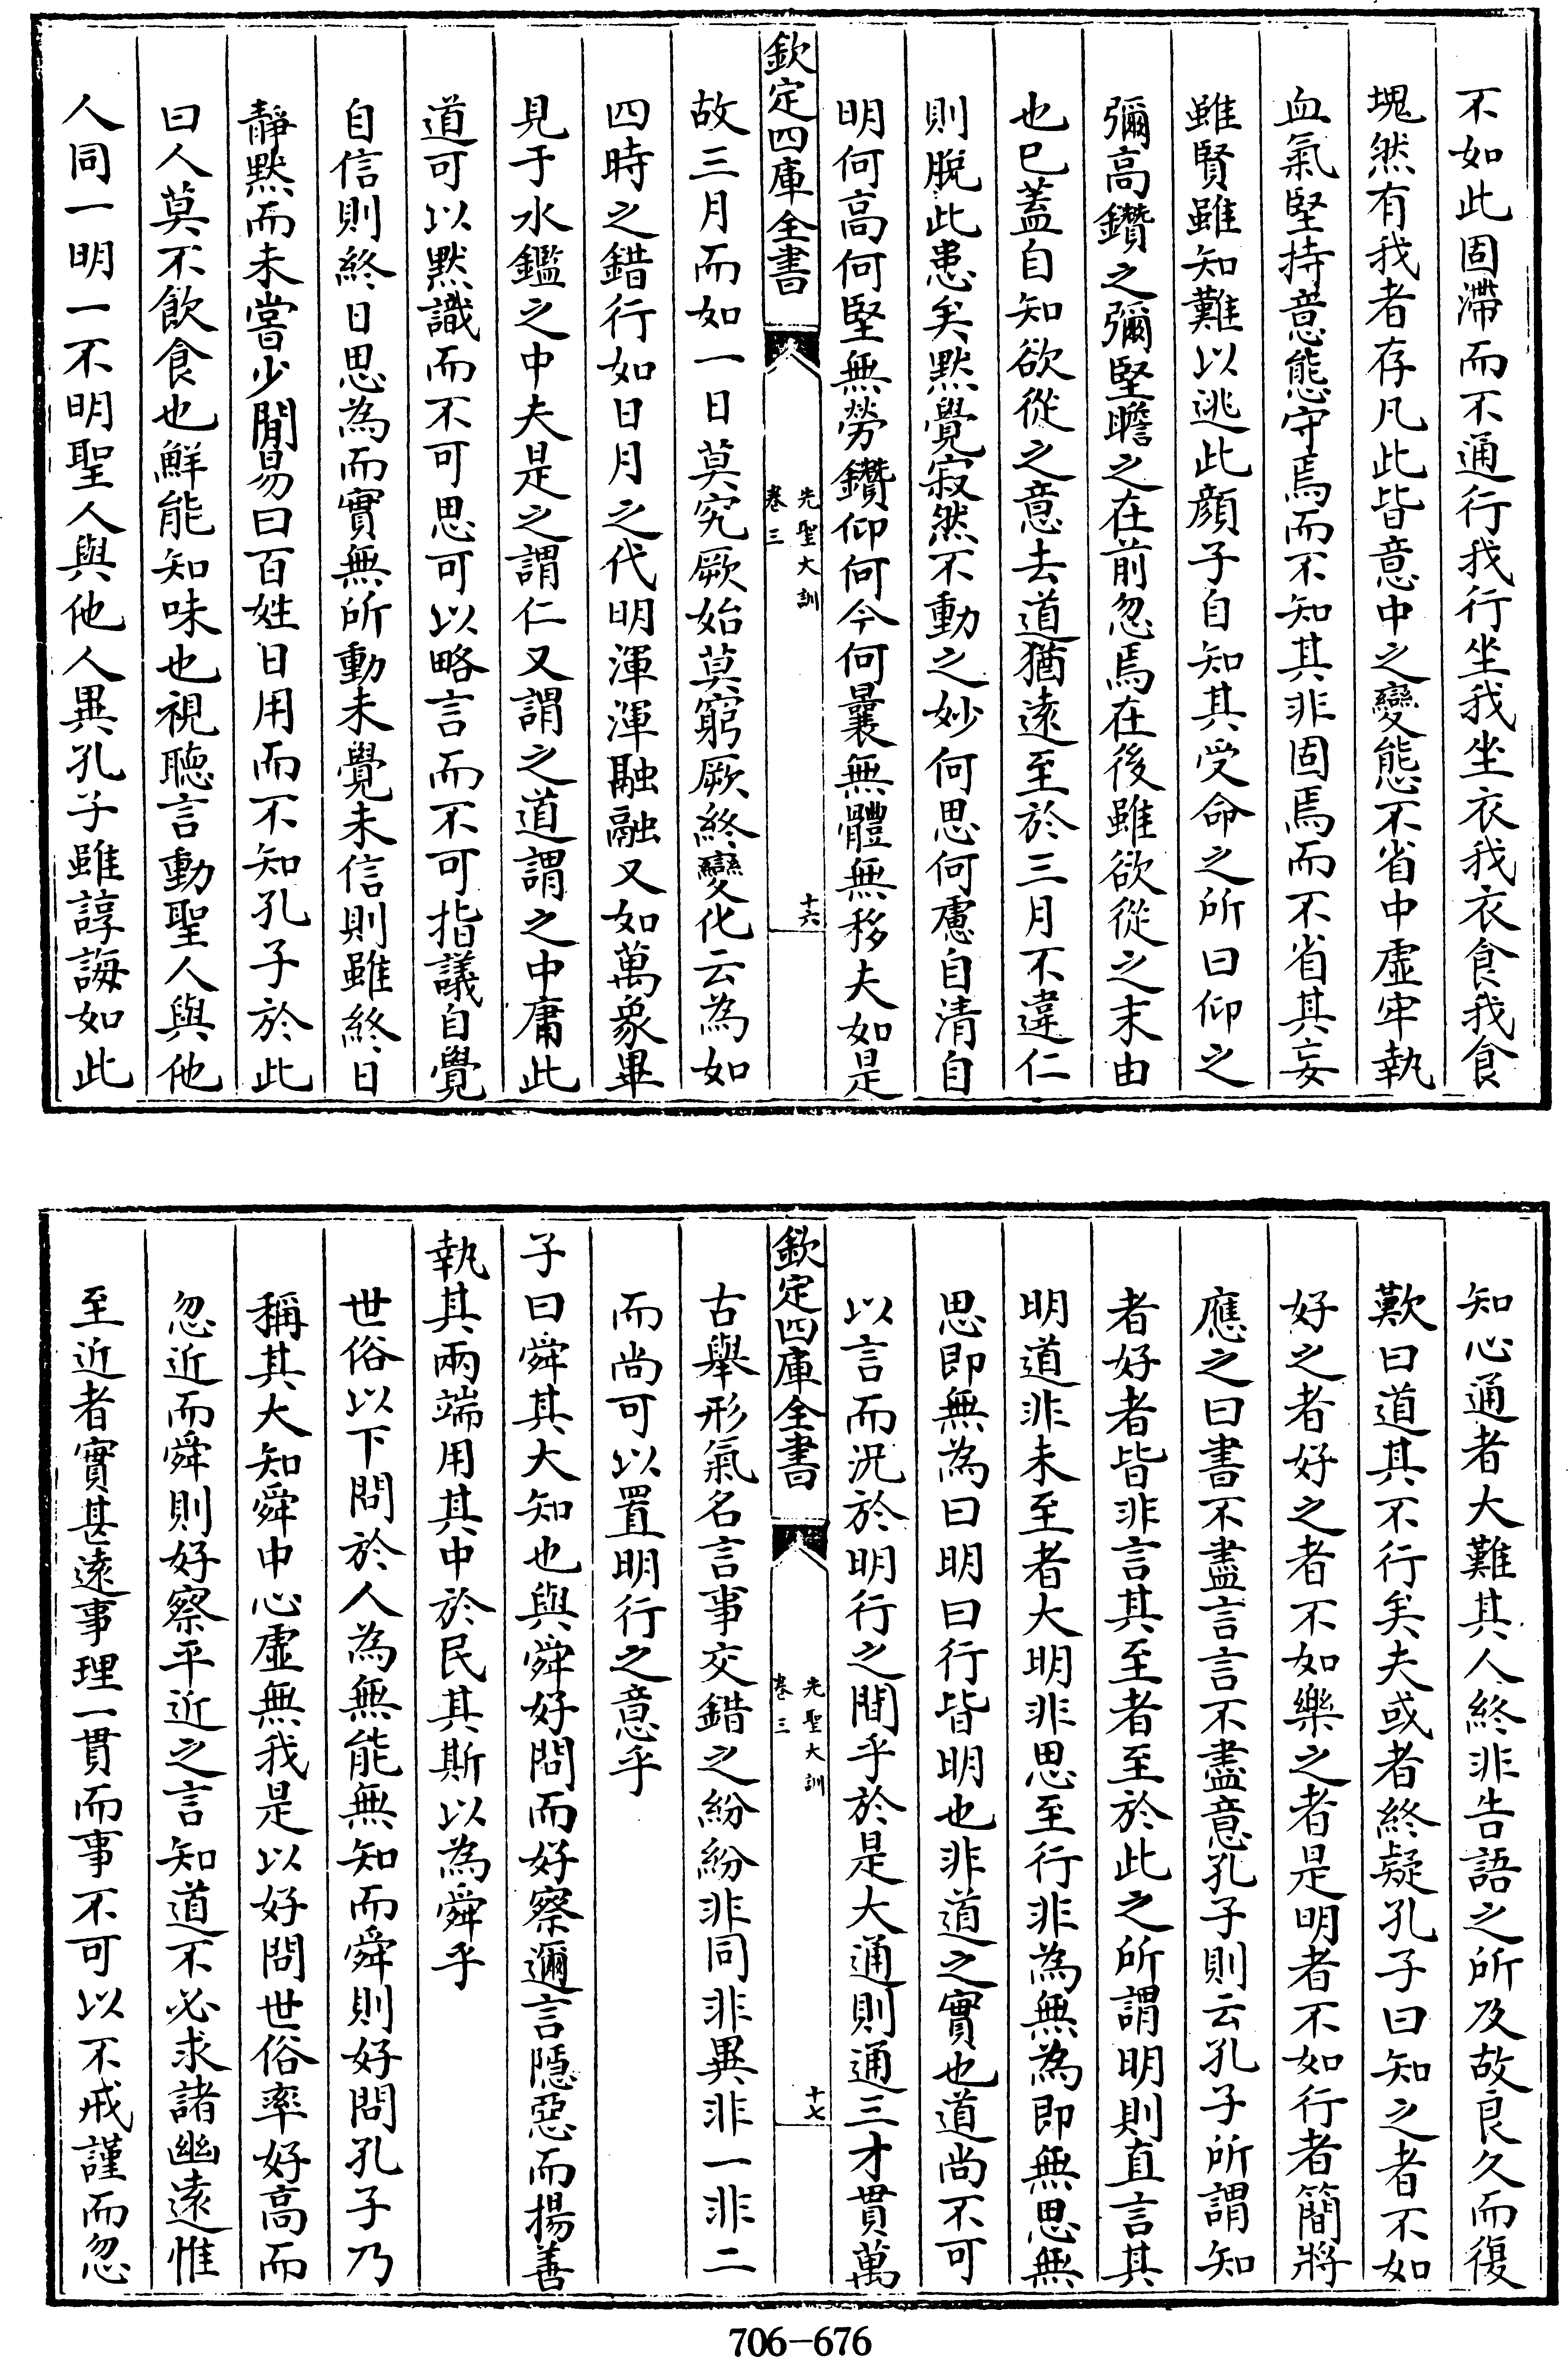 不如此固滯而不通行我行坐我坐衣我衣食我食
塊然有我者存凡此皆意中之變態不省中虛牢執
血氣堅持意態守焉而不知其非固焉而不省其妄
雖賢雖知難以逃此顔子自知其受命之所曰仰之
彌高鑽之彌堅瞻之在前忽焉在後雖欲從之末由
也巳蓋自知欲從之意去道猶遠至於三月不違仁
則脫此患矣默覺寂然不動之妙何思何慮自清自
明何高何堅無勞鑽仰何今何曩無體無移夫如是
欽定四庫全書
先聖大訓
卷三
十六
故三月而如一日莫究厥始莫窮厥終變化云為如
四時之錯行如日月之代明渾渾融融又如萬象畢
見于水鑑之中夫是之謂仁又謂之道謂之中庸此
道可以默識而不可思可以略言而不可指議自覺
自信則終日思為而實無所動未覺未信則雖終日
靜默而未嘗少閒易曰百姓日用而不知孔子於此
曰人莫不飲食也鮮能知味也視聽言動聖人與他
人同一明一不明聖人與他人異孔子雖諄誨如此
知心通者大難其人終非告語之所及故良久而復
歎曰道其不行矣夫或者終疑孔子曰知之者不如
好之者好之者不如樂之者是明者不如行者簡將
應之曰書不盡言言不盡意孔子則云孔子所謂知
者好者皆非言其至者至於此之所謂明則直言其
明道非未至者大明非思至行非為無為即無思無
思即無為曰明曰行皆明也非道之實也道尚不可
以言而況於明行之閒乎於是大通則通三才貫萬
欽定四庫全書
先聖大訓
卷三
十七
古舉形氣名言事交錯之紛紛非同非異非一非二
而尚可以置明行之意乎
子曰舜其大知也與舜好問而好察邇言隱惡而揚善
執其兩端用其中於民其斯以為舜乎
世俗以下問於人為無能無知而舜則好問孔子乃
稱其大知舜中心虛無我是以好問世俗率好高而
忽近而舜則好察平近之言知道不必求諸幽遠惟
至近者實甚遠事理一貫而事不可以不戒謹而忽
706-676